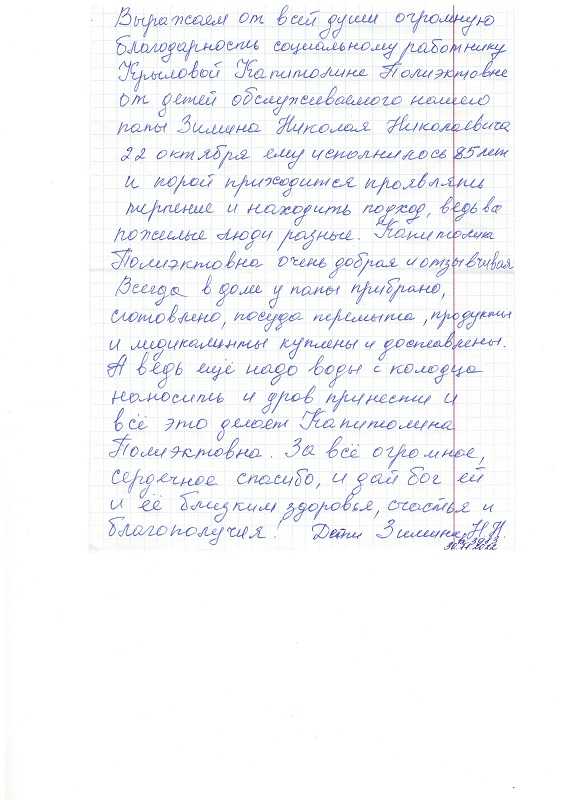 Выражаем от всей души огромную
благодарность социальному работнику
Крыловой Капитолине Полиэктовне
от детей обслуживаемого нашего
папы Зимина Николая Николаевича
22 октября ему исполнилось 85 лет
и порой приходится проявлять
терпение и находить подход, ведь все
пожилые люди разные. Капитолина
Полиэктовна очень добрая и отзывчивая
Всегда в доме у папы прибрано,
сготовлено, посуда перемыта, продукты
и медикаменты куплены и доставлены.
А ведь ещё надо воды с колодца
наносить и дров принести и
всё это делает Капитолина
Полиэктовна. За всё огромное,
сердечное спасибо, и дай бог ей
и её близким здоровья, счастья и
благополучия! Дети Зимина Н.Н.